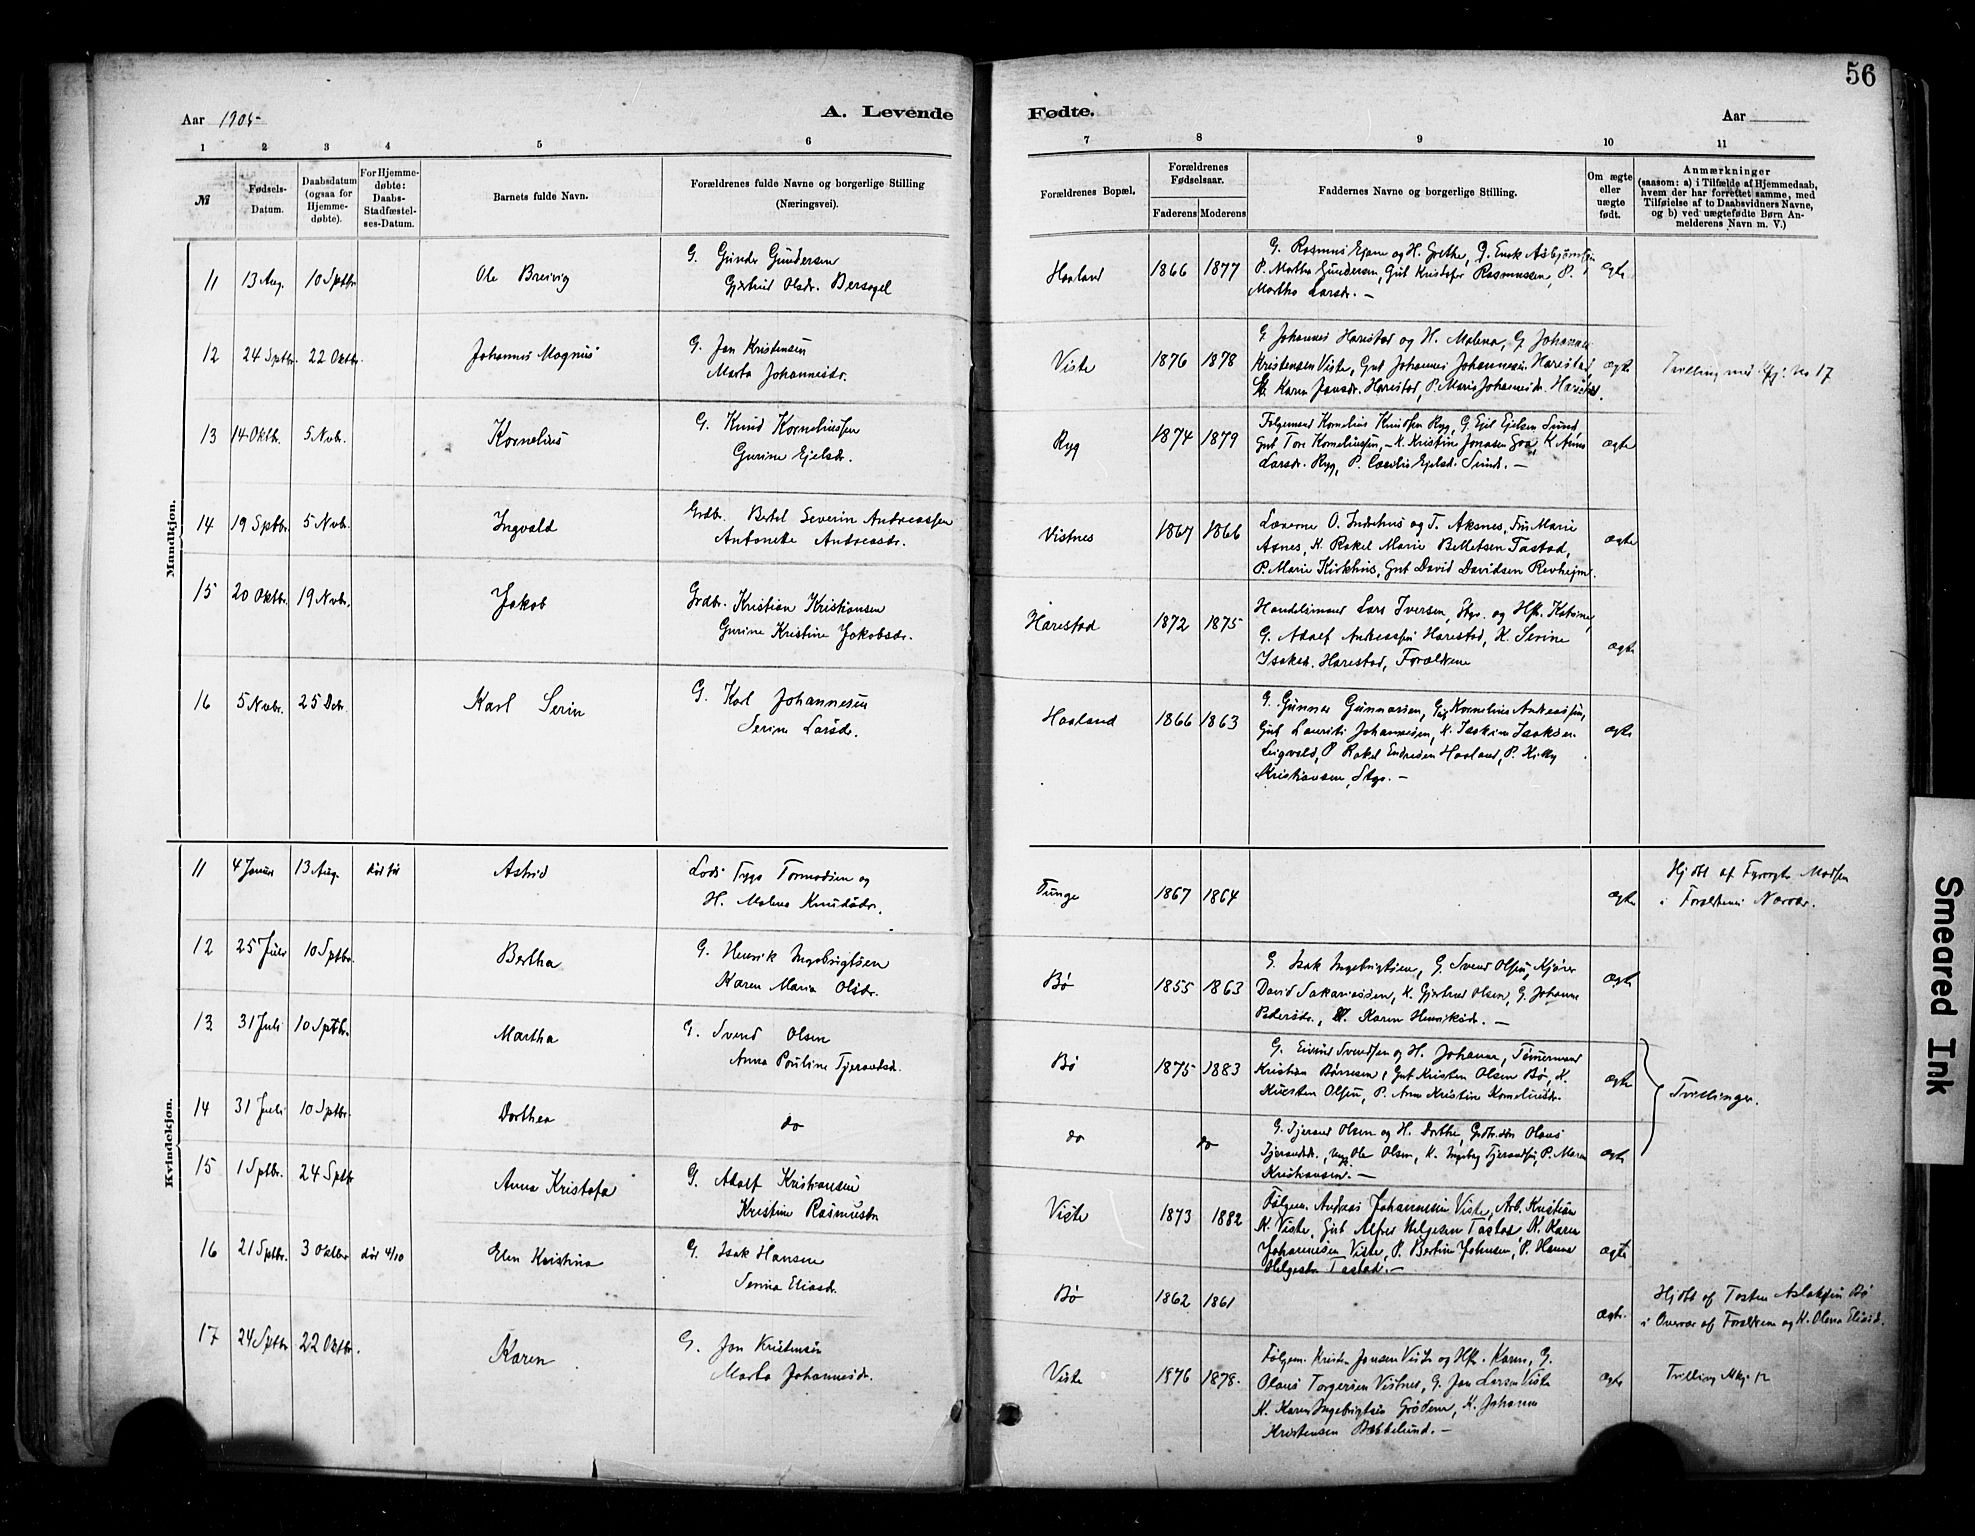 56
Aar 1905
A. Levende
Fødte.
Aar
1 2 3 4 5 6 7 8 9 10 11
№
Fødsels-
Datum.
Daabsdatum
(ogsaa for
Hjemme-
døbte).
For Hjemme-
døbte:
Daabs-
Stadfæstel-
ses-Datum.
Barnets fulde Navn.
Forældrenes fulde Navne og borgerlige Stilling
(Næringsvei).
Forældrenes Bopæl.
Forældrenes
Fødselsaar.
Faderens Moderens
Faddernes Navne og borgerlige Stilling.
Om ægte
eller
uægte
født.
Anmærkninger
(saasom: a) i Tilfælde af Hjemmedaab,
hvem der har forrettet samme, med
Tilføielse af to Daabsvidners Navne,
og b) ved uægtefødte Børn An-
melderens Navn m. V.)
Mandkjøn.
11 13 Aug. 10 Sptbr. Ole Breivig
G. Gunder Gundersen
Gjertrud Olsdr. Bersagel
Haaland 1866 1877
P. Martha Gundersen, Gut Kristofer Rasmussen, P.
Martha Larsdr. —
ægte
12 24 Sptbr. 22 Oktbr. Johannes Magnus
G. Jan Kristensen
Marta Johannesdr.
Viste 1876 1878
G. Johannes Harestad og H. Malena, G. Johannes
Kristensen Viste, Gut Johannes Johannessen Harestad,
K. Karen Jansdr. Harestad, P. Marie Johannesdr. Harestad.
ægte
Tvilling med Kvkj. No 17
13 14 Oktbr. 5 Nvbr. Kornelius
G. Knud Korneliussen
Gurine Ejelsdr.
Ryg 1874 1879
Følgemand Kornelius Knudsen Ryg, G. Ejel Ejelsen Sund
Gut Tore Korneliussen, K. Kristine Jonasen Goa, K. Anna
Larsdr. Ryg, P. Cecilie Ejelsd. Sund. —
ægte
14 19 Sptbr. 5 Nvbr. Ingvald
Grdbr. Bertel Severin Andreassen
Antonette Andreasdr.
Vistnes 1867 1866
Lærerne O. Indrehus og T. Aksnes, Fru Marie
Asnes, K. Rakel Marie Tastad,
P. Marie Kirkhus, Gut David Davidsen Revheim.
ægte
15 20 Oktbr. 19 Nvbr. Jakob
Grdbr. Kristian Kristiansen
Gurine Kristine Jakobsdr.
Harestad 1872 1875
Handelsmand Lars Iversen, Stgr. og Hst. Katrine,
G. Adolf Andreassen Harestad, K. Serine
Isaksd. Harestad, Forældrene
ægte
16 5 Nvbr. 25 Dcbr. Karl Serin
G. Karl Johannesen
Serine Larsdr.
Haaland 1866 1863
G. Gunnar Gunnarsen, Gut Kornelius Andreassen,
Gut Laurits Johannesen, K. Isakine Isaksen
Leigvold, P. Rakel Endresen Haaland, P. Kikky
Kristiansen, Stgr. —
ægte
Kvindekjøn.
11 4 Januar 13 Aug. død før Astrid
Lods Trygo Tormodsen og
H. Malena Knudsdr.
Tunge 1867 1864
ægte
Hjdbt af Fyrvogter Madsen
i Forældrenes Nærvær.
12 25 Juli 10 Sptbr. Bertha
G. Henrik Ingebrigtsen
Karen Maria Olsdr.
Bø 1855 1863
G. Isak Ingebrigtsen, G. Svend Olsen, Kjører
David Sakariassen, K. Gjertrud Olsen, G. Johanne
Pedersdr., K. Karen Henriksdr. —
ægte
13 31 Juli 10 Sptbr. Martha
G. Svend Olsen
Anna Pouline Tjerandsd.
Bø 1875 1883
G. Eivind Svendsen og H. Johanne, Tømmermand
Kristian Børresen, Gut Kristen Olsen Bø, K.
Kirsten Olsen, P. Ane Kristine Korneliusdr.
ægte
Tvillinger.
14 31 Juli 10 Sptbr. Dorthea
do
do do
G. Tjerand Olsen og H. Dorthe, Grdbr.søn Olaus
Tjerandsd., Ungk. Ole Olsen, K. Ingeborg Tjerandsen, P. Maren
Kristiansen. —
ægte
15 1 Sptbr. 24 Sptbr Anna Kristofa
G. Adolf Kristiansen
Kristine Rasmusdr
Viste 1873 1882
Følgem. Andreas Johannessen Viste, Arb. Kristian
K. Viste, Gut Alfred Helgesen Tastad, K. Karen
Johannesen Viste, P. Bertine Johnsen, P. Hanna
Helgesdr. Tastad. —
ægte
16 21 Sptbr. 3 Oktbr død 4/10 Elen Kristina
G. Isak Hansen
Serina Eliasdr.
Bø 1862 1861
ægte.
Hjdbt af Tosten Aslaksen Bø
i Overvær af Forældrene og K. Olena Eliasd.
17 24 Sptbr 22 Oktbr. Karen
G. Jan Kristensen
Marta Johannesdr.
Viste 1876 1878.
Følgem. Kristen Jansen Viste og Hst. Karen, G.
Olaus Torgersen Vistnes, G. Jan Larsen Viste
K. Karen Ingebrigtsen Grødem, K. Johanne
Kristensen Bakkelund. —
ægte
Tvilling Mkj. 12
Smeared Ink